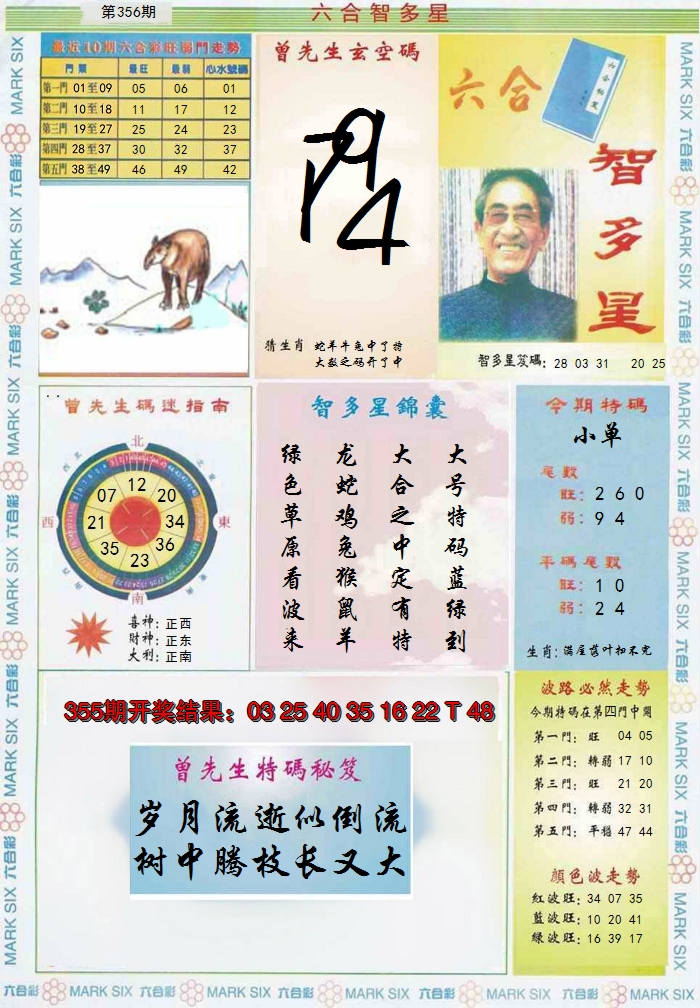 第356期
六合智多星
最近10期六合彩旺弱門走勢
門類 最旺 最弱 心水號碼
第一門 01至09 05 06 01
第二門 10至18 11 17 12
第三門 19至27 25 24 23
第四門 28至37 30 32 37
第五門 38至49 46 49 42
曾先生玄空碼
猜生肖 蛇羊牛兔中了特
大数之码开了中
六合
智多星
智多星笈碼: 28 03 31 20 25
曾先生碼迷指南
北
東
南
西
12
20
34
36
23
35
21
07
喜神: 正西
財神: 正东
大利: 正南
智多星錦囊
大号特码蓝绿到
大合之中定有特
龙蛇鸡兔猴鼠羊
绿色草原看波来
今期特碼
小单
尾數
旺: 2 6 0
弱: 9 4
平碼尾數
旺: 1 0
弱: 2 4
生肖: 满屋落叶扫不完
355期开奖结果: 03 25 40 35 16 22 T 48
曾先生特碼秘笈
岁月流逝似倒流
树中腾枝长又大
波路必然走勢
今期特碼在第四門中開
第一門: 旺 04 05
第二門: 轉弱 17 10
第三門: 旺 21 20
第四門: 轉弱 32 31
第五門: 平穩 47 44
顔色波走勢
紅波旺: 34 07 35
藍波旺: 10 20 41
綠波旺: 16 39 17
MARK SIX 六合彩